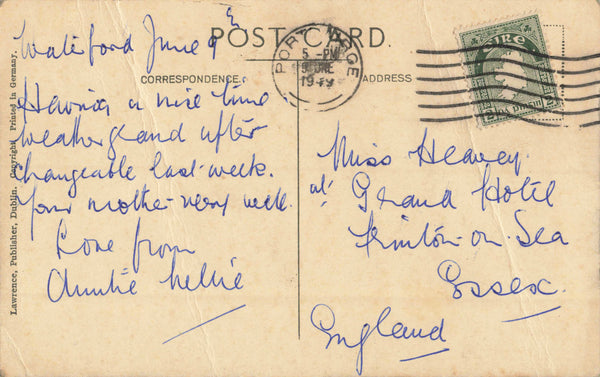 Waterford June 9th
POST CARD.
CORRESPONDENCE.
ADDRESS
Having a nice time
weather grand after
changeable last week.
Your mother very well.
Love from
Auntie Nellie
Miss Heavey
at Grand Hotel
Frinton-on-Sea
Essex.
England
PORT LÁIRGE
5 - PM
9 JNE
ÉIRE
Lawrence, Publisher, Dublin. Copyright. Printed in Germany.